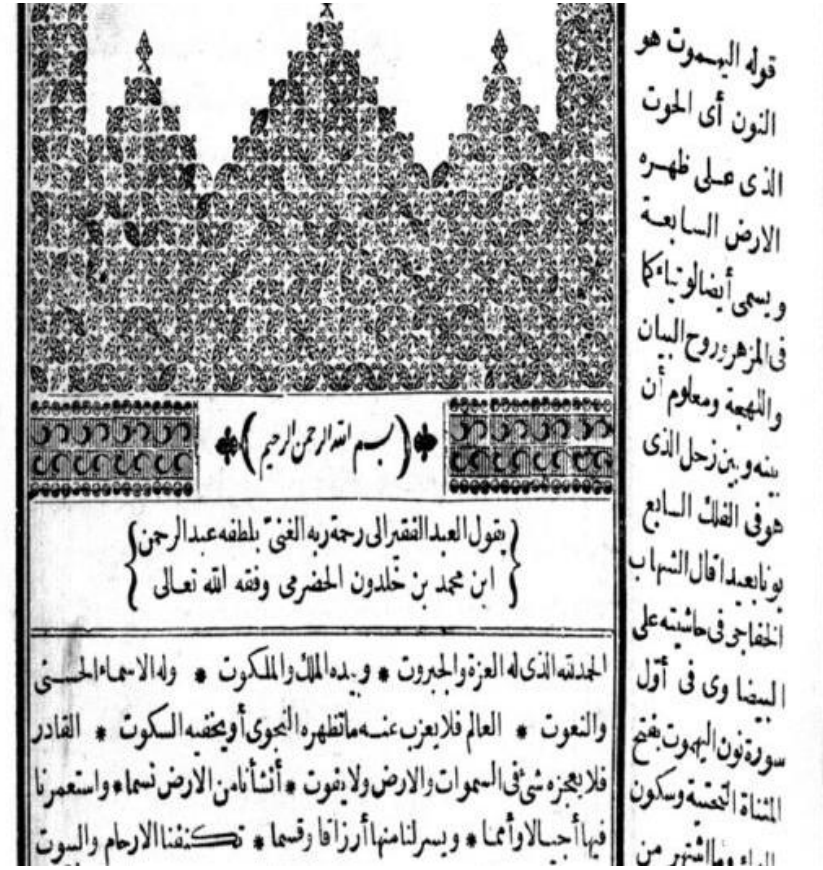 (بسم الله الرحمن الرحيم)
(يقول العبد الفقير الى رحمة ربه الغنىّ بلطفه عبد الرحمن)
(ابن محمد بن خلدون الحضرمى وفقه الله تعالى)
الحمد لله الذى له العزة والجبروت * وبيده الملك والملكوت * وله الاسماء الحسنى
والنعوت * العالم فلا يعزب عنه ماتظهره النجوى أو يخفيه السكوت * القادر
فلا يعجزه شئ فى السموات والارض ولا يفوت * أنشأنا من الارض نسما * واستعمرنا
فيها أجيالا وأمما * ويسر لنا منها أرزاقا وقسما * تكنفنا الارحام والبيوت
قوله اليهموت هو
النون أى الحوت
الذى على ظهره
الارض السابعة
ويسمى أيضا لوتياء كما
فى المزهر وروح البيان
واللهجة ومعلوم أن
بينه وبين زحل الذى
هو فى الفلك السابع
بونا بعيدا قال الشهاب
الخفاجى فى حاشيته على
البيضاوى فى أوّل
سورة نون اليهموت بفتح
المثناة التحتية وسكون
الهاء وما اشتهر من